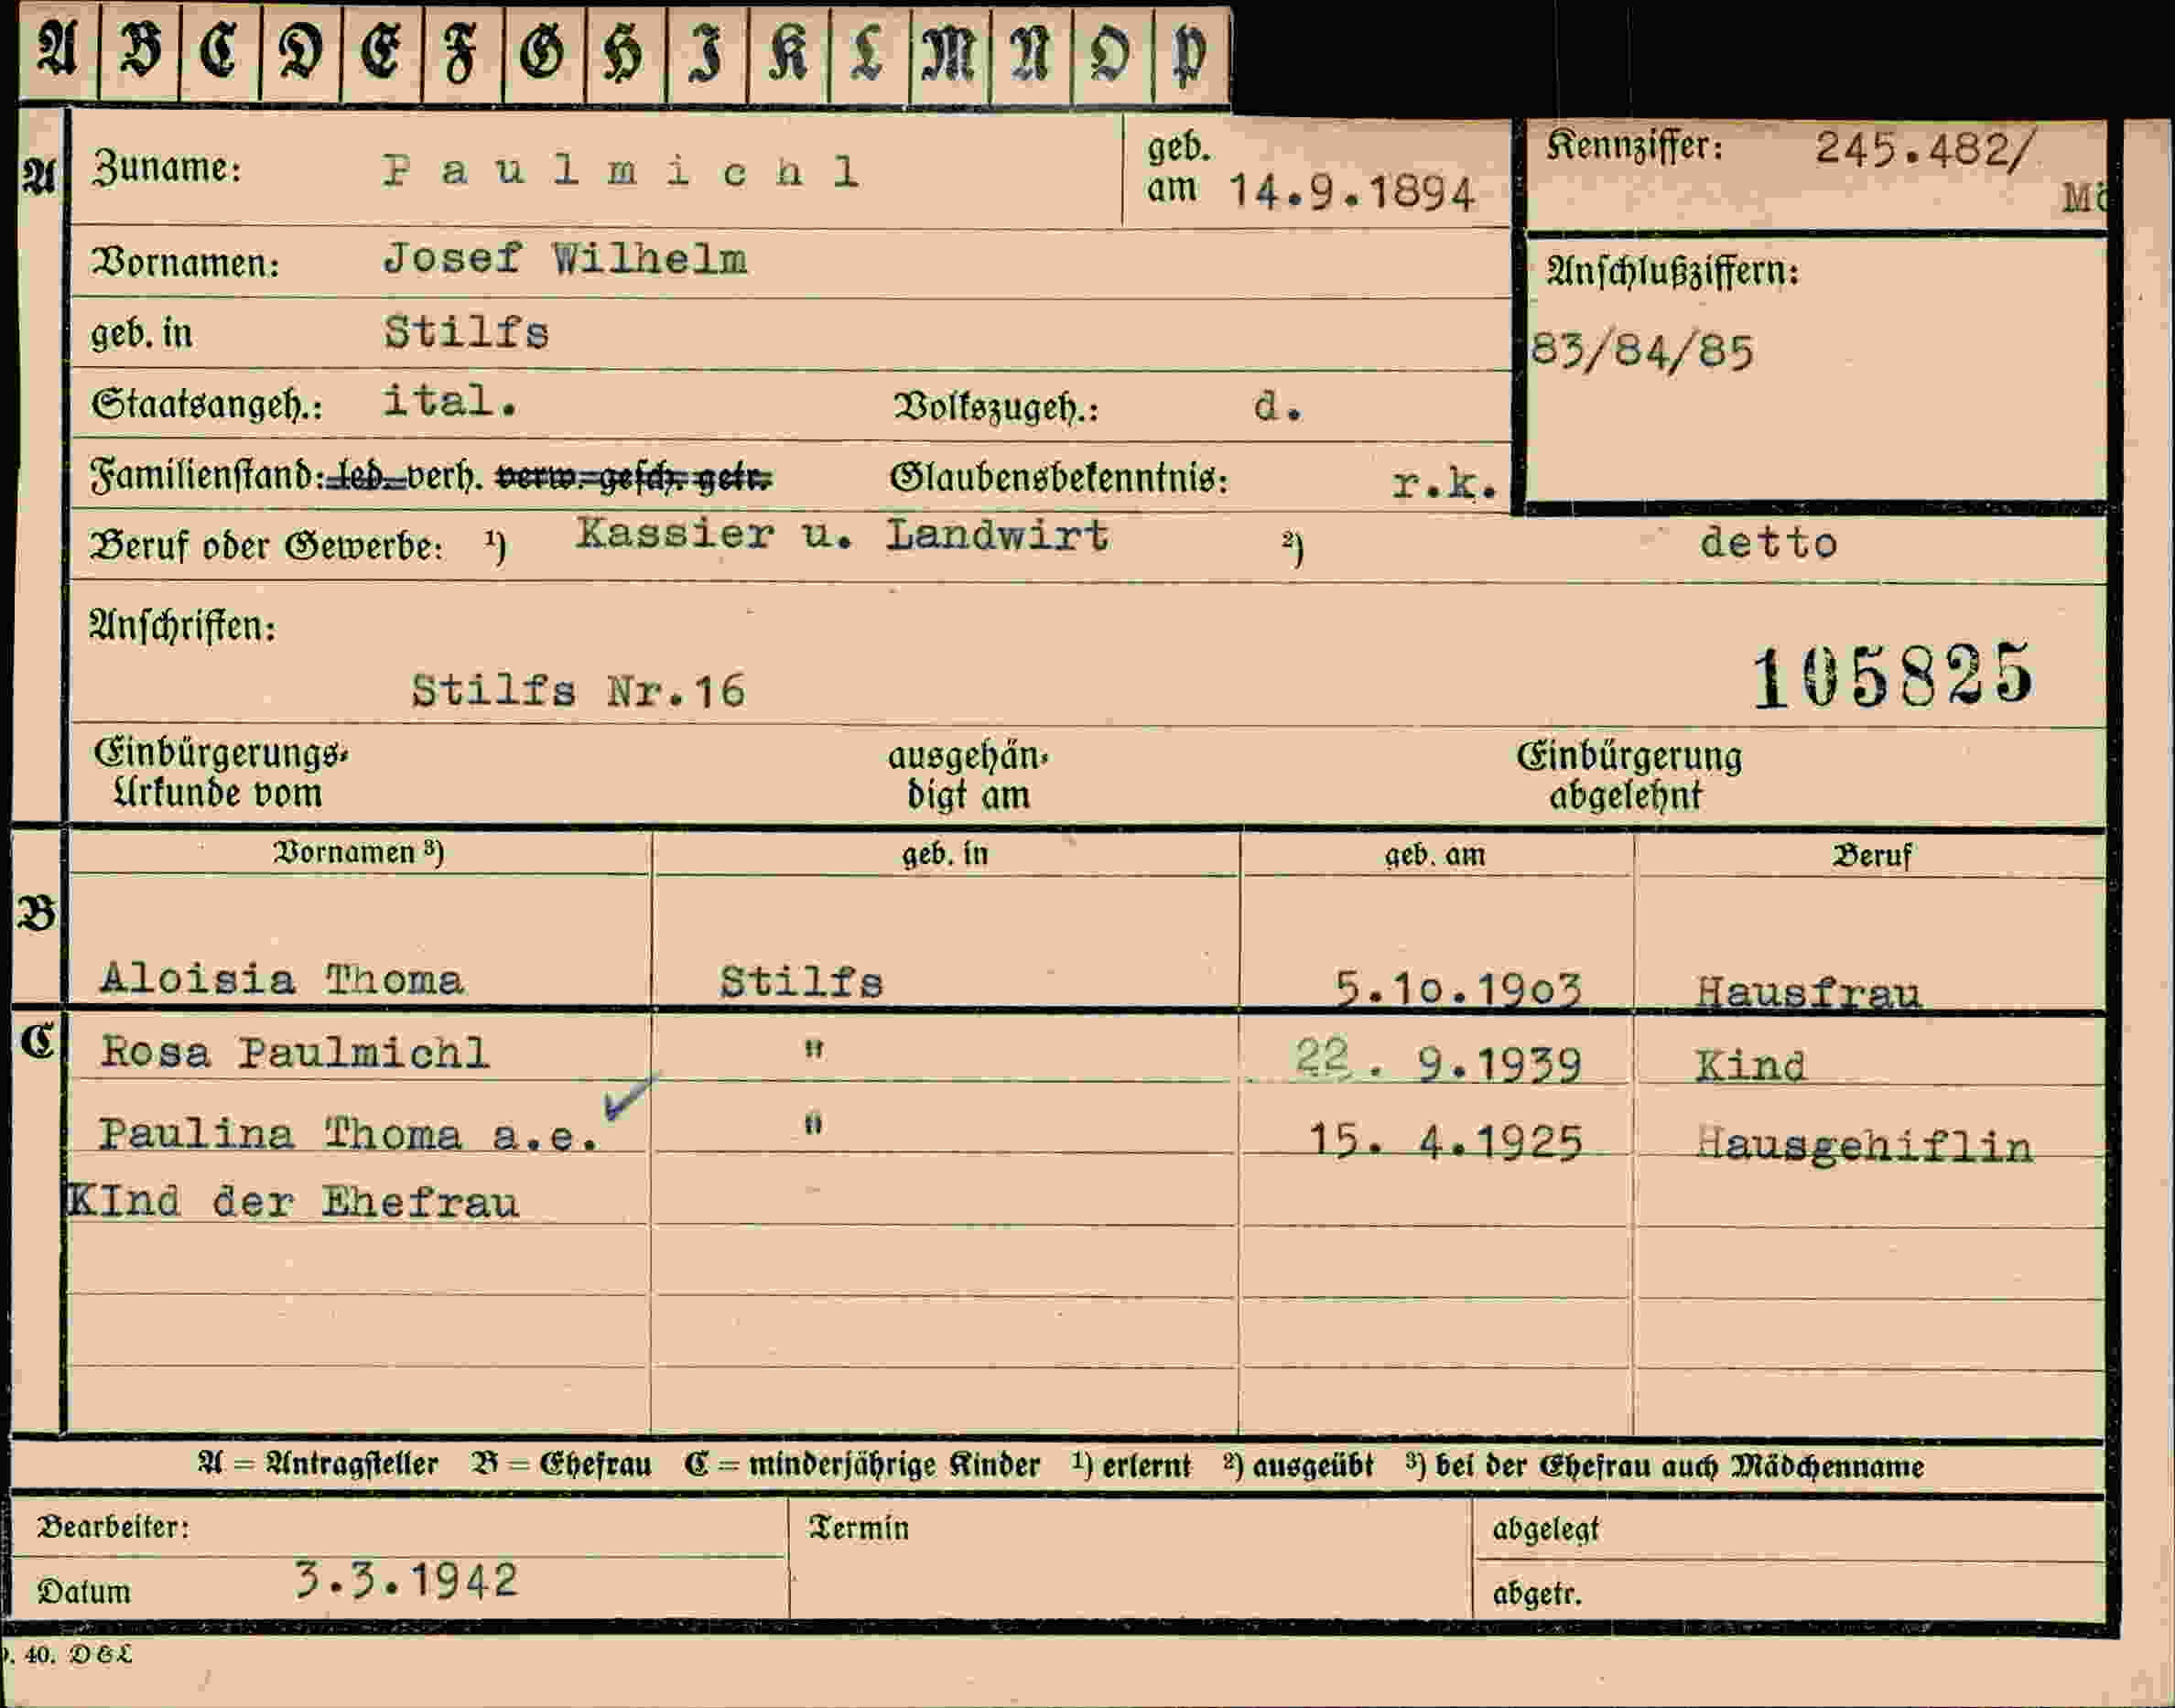 A B C D E F G H I K L M N O P
A Zuname: Paulmichl geb. am 14.9.1894 Kennziffer: 245.482/
Mö
Vornamen: Josef Wilhelm Anschlußziffern:
geb. in Stilfs 83/84/85
Staatsangeh.: ital. Volkszugeh.: d.
Familienstand: led. verh. verw. gesch. getr. Glaubensbekenntnis: r.k.
Beruf oder Gewerbe: ¹) Kassier u. Landwirt ²) detto
Anschriften:
Stilfs Nr.16 105825
Einbürgerungs- ausgehän- Einbürgerung
Urkunde vom digt am abgelehnt
Vornamen ³) geb. in geb. am Beruf
B
Aloisia Thoma Stilfs 5.10.1903 Hausfrau
C Rosa Paulmichl " 22. 9.1939 Kind
Paulina Thoma a.e. " 15. 4.1925 Hausgehiflin
KInd der Ehefrau
A = Antragsteller B = Ehefrau C = minderjährige Kinder ¹) erlernt ²) ausgeübt ³) bei der Ehefrau auch Mädchenname
Bearbeiter: Termin abgelegt
Datum 3.3.1942 abgetr.
40. D & L